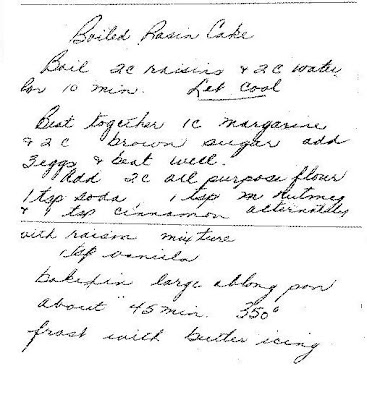 Boiled Rasin Cake
Boil 2C raisins & 2C water
for 10 min. Let Cool
Beat together 1C margarine
& 2C brown sugar add
3 eggs & beat well.
Add 2C all purpose flour
1 tsp soda 1 tsp nutmeg
& 1 tsp cinnamon alternately
with raisin mixture
1 tsp vanilla
bake in large oblong pan
about 45 min. 350°
frost with butter icing